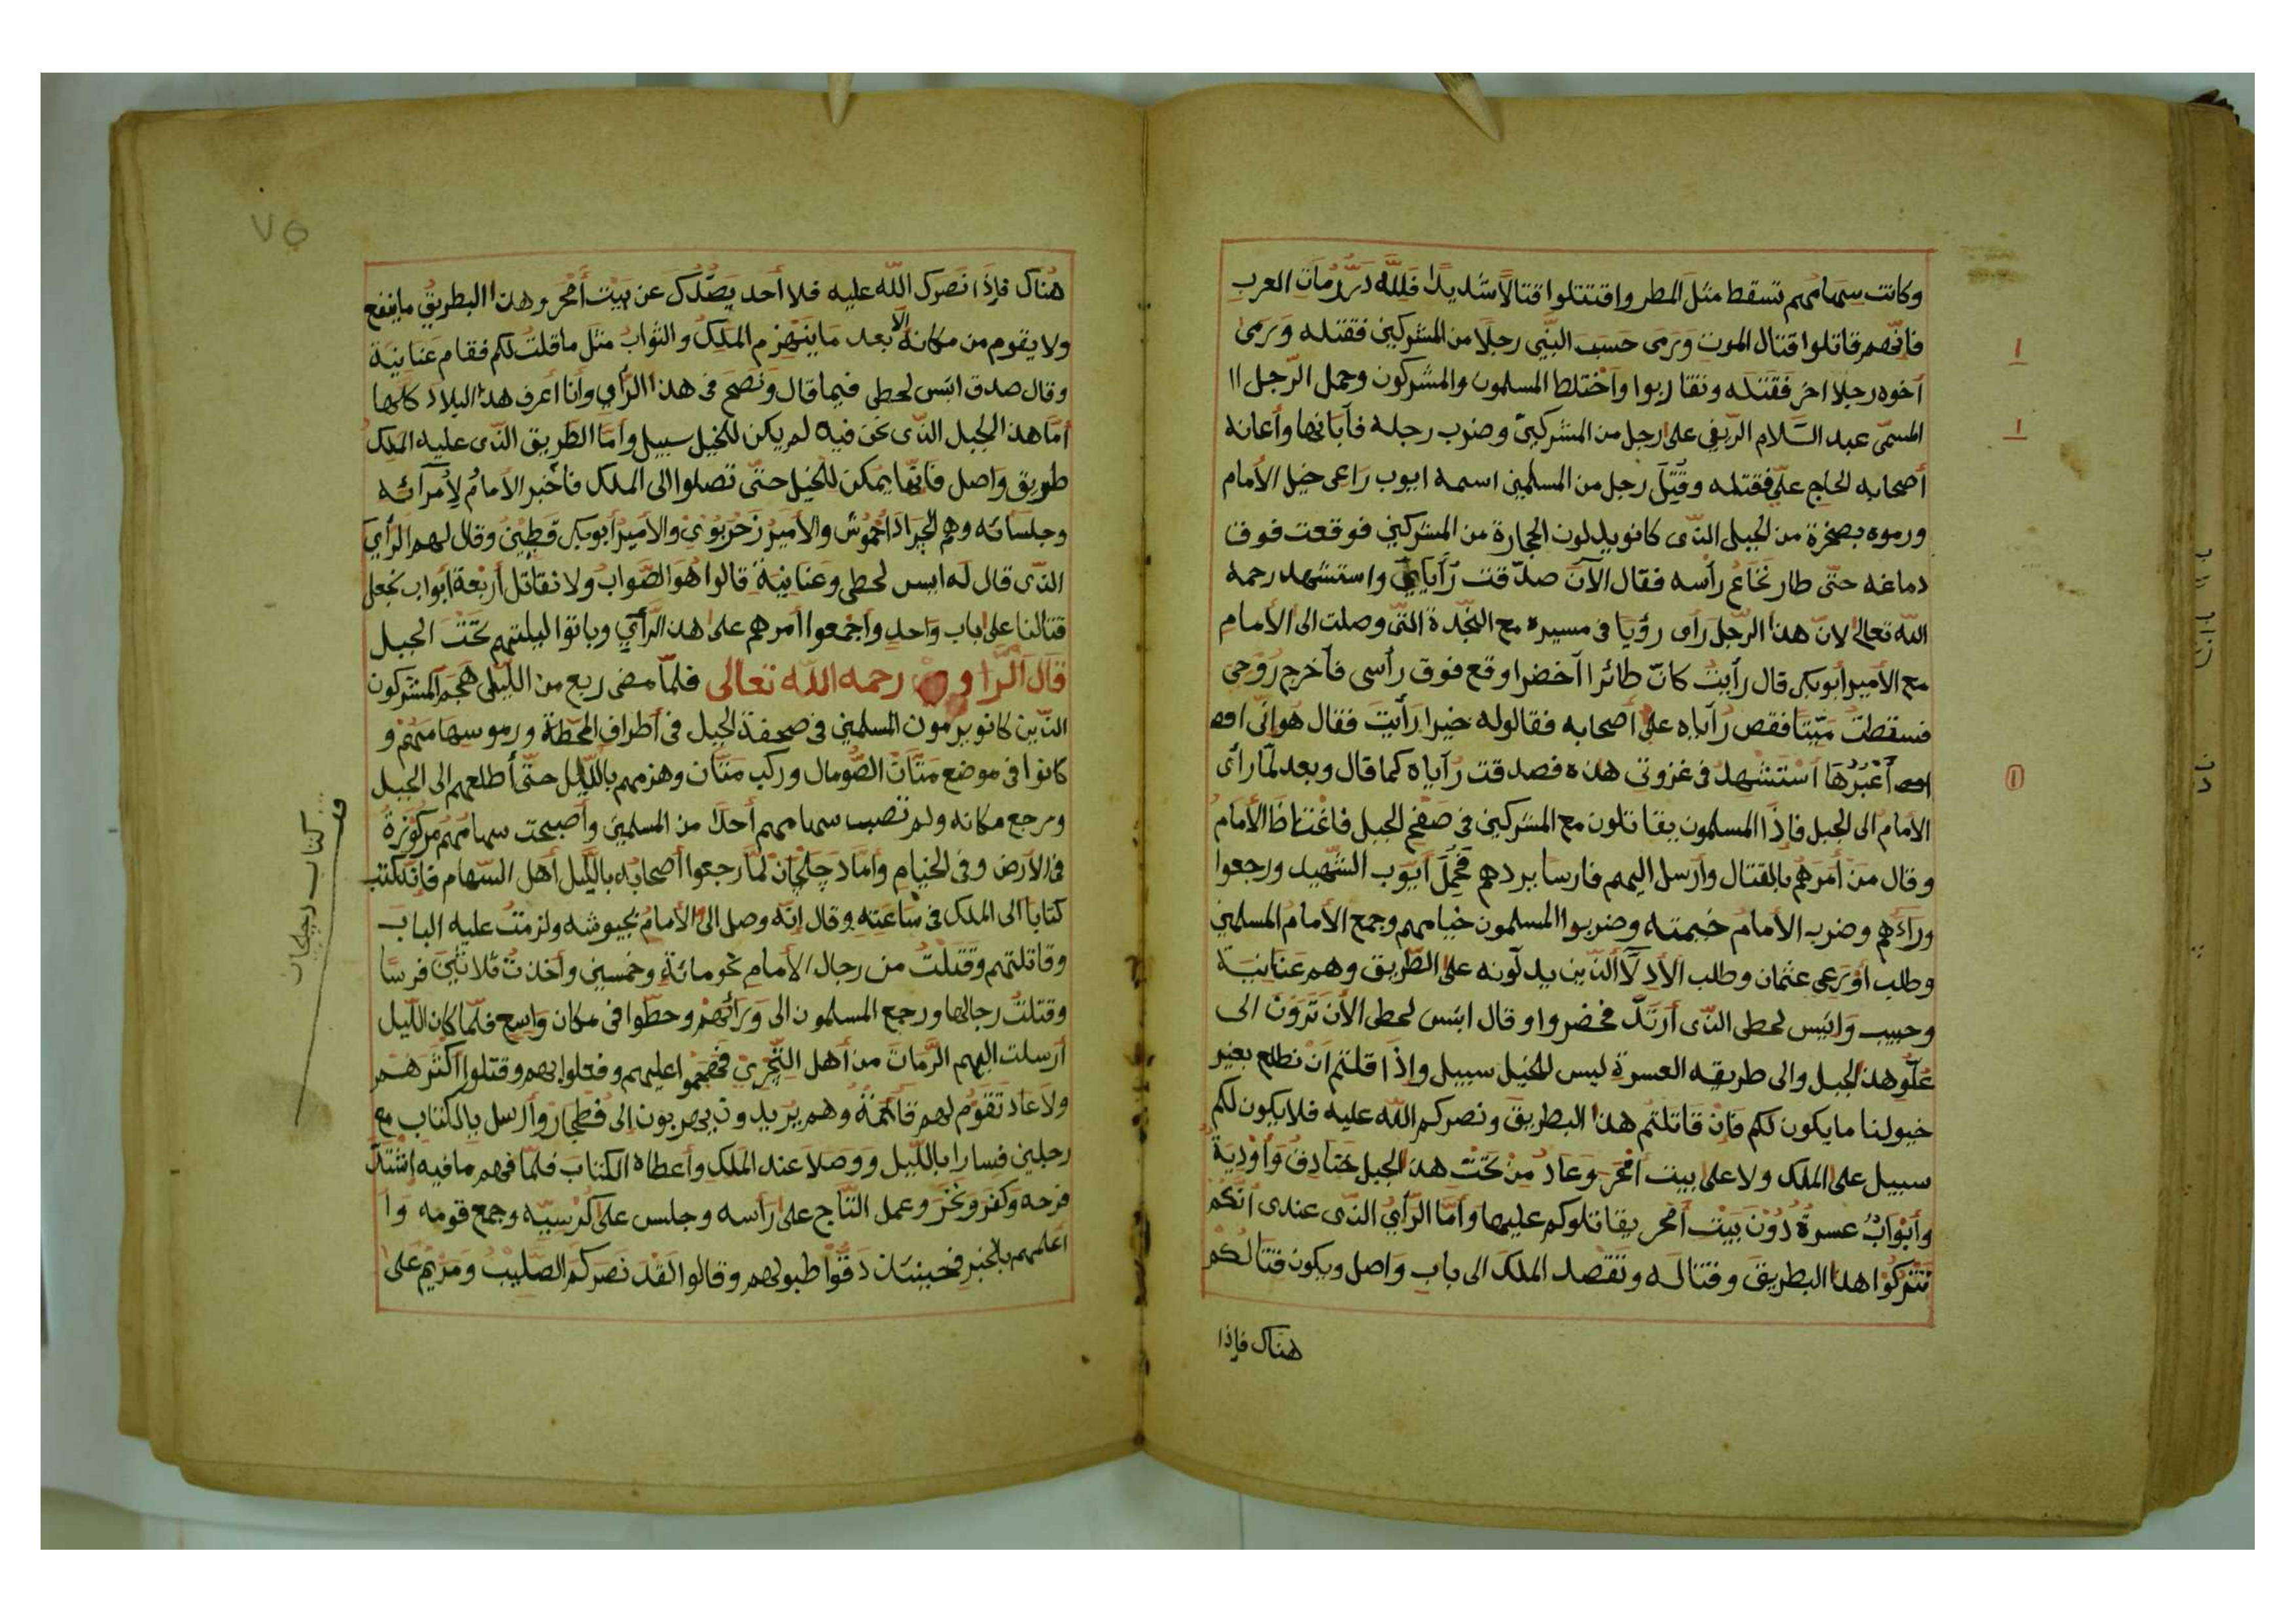 وكانت سهامهم تسقط مثل المطر واقتتلوا قتالاً شديداً فلله درّ رمات العرب
فانّهم قاتلوا قتال الموت ورمى حسب النبي رجلا من المشركين فقتله ورمى
أخوه رجلا اخر فقتله وتقاربوا واختلط المسلمون والمشركون وحمل الرّجل ا
المسمّى عبد السّلام الرّيفي على رجل من المشركين وضرب رجله فأبانها وأعانه
أصحابه الحاج عليّ فقتله وقُتِلَ رجل من المسلمين اسمه ايوب راعى خيل الأمام
ورموه بصخرة من الجبل الذّى كانو يدلون الحجارة من المشركين فوقعت فوق
دماغه حتّى طار نخاع رأسه فقال الآن صدّقت رُآياي واستشهد رحمه
الله تعالى لانّ هذا الرّجل رأى رؤيا فى مسيره مع النّجدة التّى وصلت الى الأمام
مع الأمير أبوبكر قال رأيتُ كانّ طائرا أخضرا وقع فوق رأسى فأخرج رُوحى
فسقطتُ ميّتا فقص رُآياه على أصحابه فقالوله خيرا رأيتَ فقال هو انّى
أعْبُرُهَا أسْتشهدُ فى غزوتى هذه فصدقت رُآياه كما قال وبعد لمّا رأى
الأمام الى الجبل فاذا المسلمون يقاتلون مع المشركين فى صفح الجبل فاغتاظ الأمام
وقال من أمَرَهُم بالقتال وأرسل اليهم فارسا يردهم فحمل أيّوب الشّهيد ورجعوا
ورآءهم وضرب الأمام خيمته وضربوا المسلمون خيامهم وجمع الأمام المسلمين
وطلب أورعى عثمان وطلب الأدلّآ الذّين يدلّونه على الطّريق وهم عنانية
وحبيب وابَس لحطى الذّى أرتدّ فحضروا وقال ابَس لحطى الأن ترون الى
علوّ هذا الجبل والى طريقه العسرة ليس للخيل سبيل وإذا قلتم انْ نطلع بغير
خيولنا ما يكون لكم فان قاتلتم هذا البطريق ونصركم الله عليه فلا يكون لكم
سبيل على الملك ولا على بيت أمْحَر وعاد مِنْ تَحْت هذا الجبل خنادقُ وأوديةُ
وأبوابٌ عسرةٌ دُوْنَ بَيْت أمحر يقاتلوكم عليها وأمّا الرّأي الذّى عندى أنّكم
تتركوا هذا البطريق وقتاله وتقصد الملك الى باب واصل ويكون قتالكم
هناك فإذا
٧٥
هُناك فإذا نصرك الله عليه فلا أحد يصّدك عن بيت أمحر وهذا البطريق ما ينفع
ولا يقوم من مكانه إلّا بعد ما ينهزم الملك والثوابُ مثل ما قلتُ لكم فقام عنانية
وقال صدق ابَس لحطى فيما قال ونصَح فى هذا الرّأي وأنا أعرف هذه البلاد كلها
أمّا هذا الجبل الذّى نحن فيه لم يكن للخيل سبيل وأمّا الطّريق الذّى عليه الملك
طريق واصل فانّها يمكن للخيل حتّى تصلوا الى الملك فأخبر الأمام لأمرآئه
وجلسائه وهم الجراد أحموش والأمير زحربوى والأمير أبوبكر قطين وقال لهم الرأي
الذّى قال له ابس لحطى وعنانية قالوا هو الصّواب ولا نقاتل أربعة أبواب نجعل
قتالنا على باب واحد وأجمعوا أمرهم على هذا الرّأي وباتوا ليلتهم تحت الجبل
قال الرّاوى رحمه الله تعالى فلمّا مضى ربع من اللّيل هجم المشركون
الذّين كانو يرمون المسلمين فى صحفة الجبل فى أطراف المحطة ورموا سهامهم و
كانوا فى موضع متان الصّومال وركب متان وهزمهم باللّيل حتّى أطلعهم الى الجبل
ورجع مكانه ولم تصب سهامهم أحدًا من المسلمين وأصبحت سهامُهم مركوزة
فى الأرض وفى الخيام وأمّا دجلحان لمّا رجعوا أصحابه باللّيل أهل السّهام فانّه كتب
كتابا الى الملك فى ساعته وقال انّه وصل الى الأمام بجيوشه ولزمتُ عليه الباب
وقاتلتهم وقتلتُ من رجال الأمام نحو مائة وخمسين وأخذت ثلاثين فرسًا
وقتلتُ رجالها ورجع المسلمون الى ورآئهم وحطّوا فى مكان واسع فلمّا كان اللّيل
أرسلت اليهم الرّمات من أهل التّجرى فهجموا عليهم وفعلوا بهم وقتلوا أكثرهم
ولا عاد تقوم لهم قائمة وهم يريدون يهربون إلى فطجار وأرسل بالكتاب مع
رجلين فسارا باللّيل ووصلا عند الملك وأعطاه الكتاب فلمّا فهم ما فيه اشتدّ
فرحه وكفر ونخر وعمل التّاج على رأسه وجلس على كرسيّه وجمع قومه وا
أعلمهم بالخبر فحينئذ دقّوا طبولهم وقالوا لقد نصركم الصّليب ومريم على